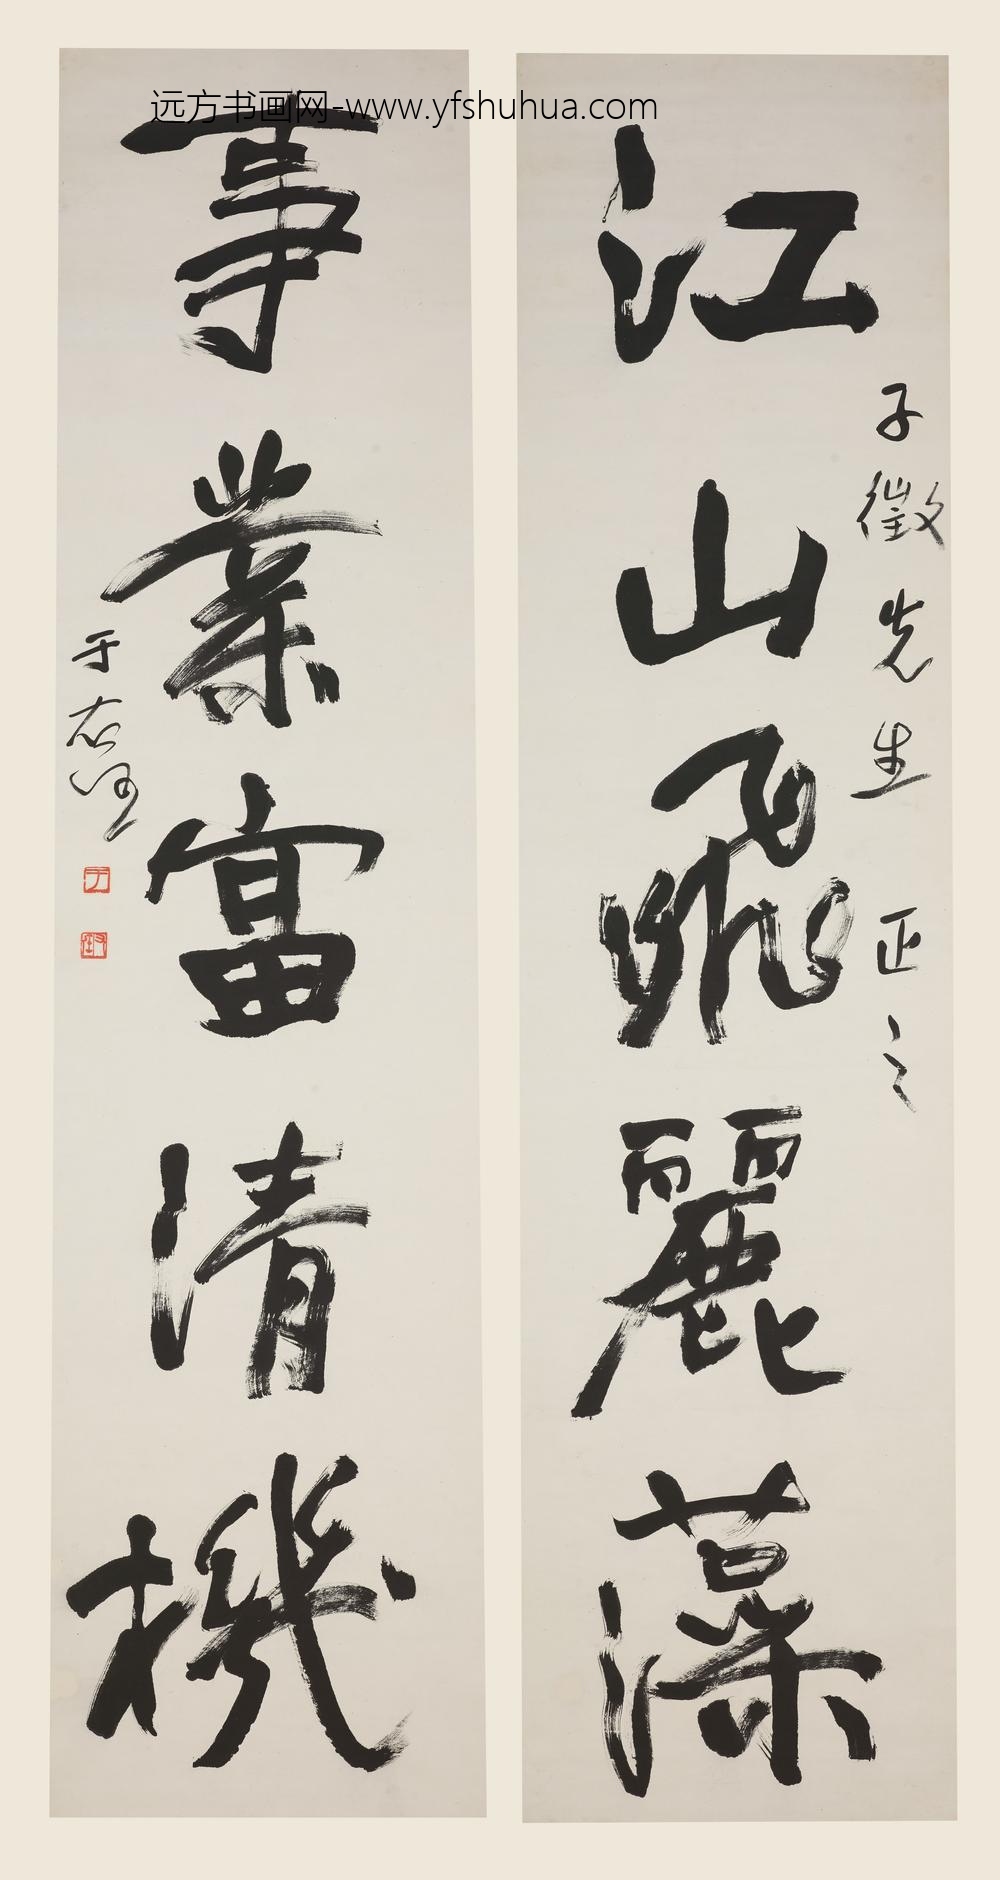 远方书画网-www.yfshuhua.com
江山飛麗藻
子徵先生正之
事業富清機
于右任